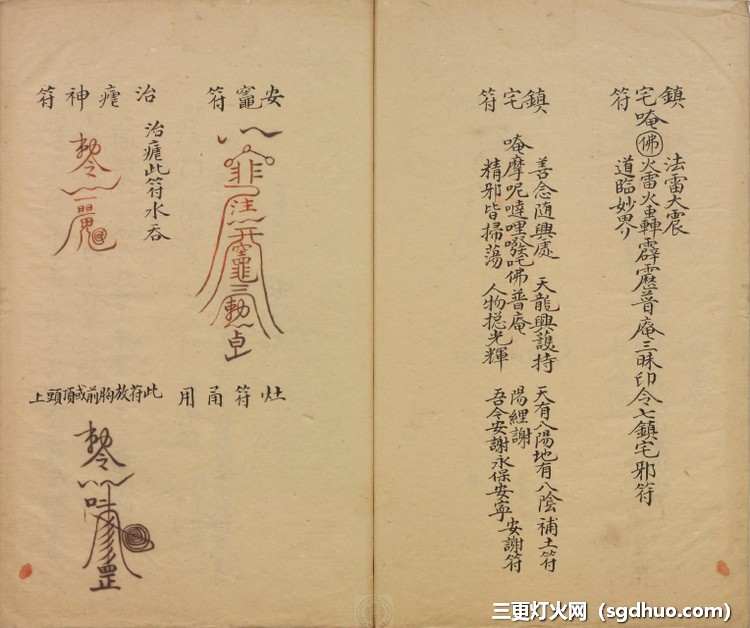 鎮宅符
唵佛火雷火車轟霹靂普庵三昧印令七鎮宅邪符
法雷大震
道臨妙界
鎮宅符
唵摩呢噠哩吽佛普庵
善念隨興處 天龍興護持
精邪皆掃蕩 人物搃光輝
天有八陽地有八陰 補土符
陽經謝
吾今安謝永保安寧 安謝符
安竈符
灶符甬用
治瘧神符
治瘧此符水吞
此符放胸前或頂頭上
三更灯火网（sgdhuo.com）